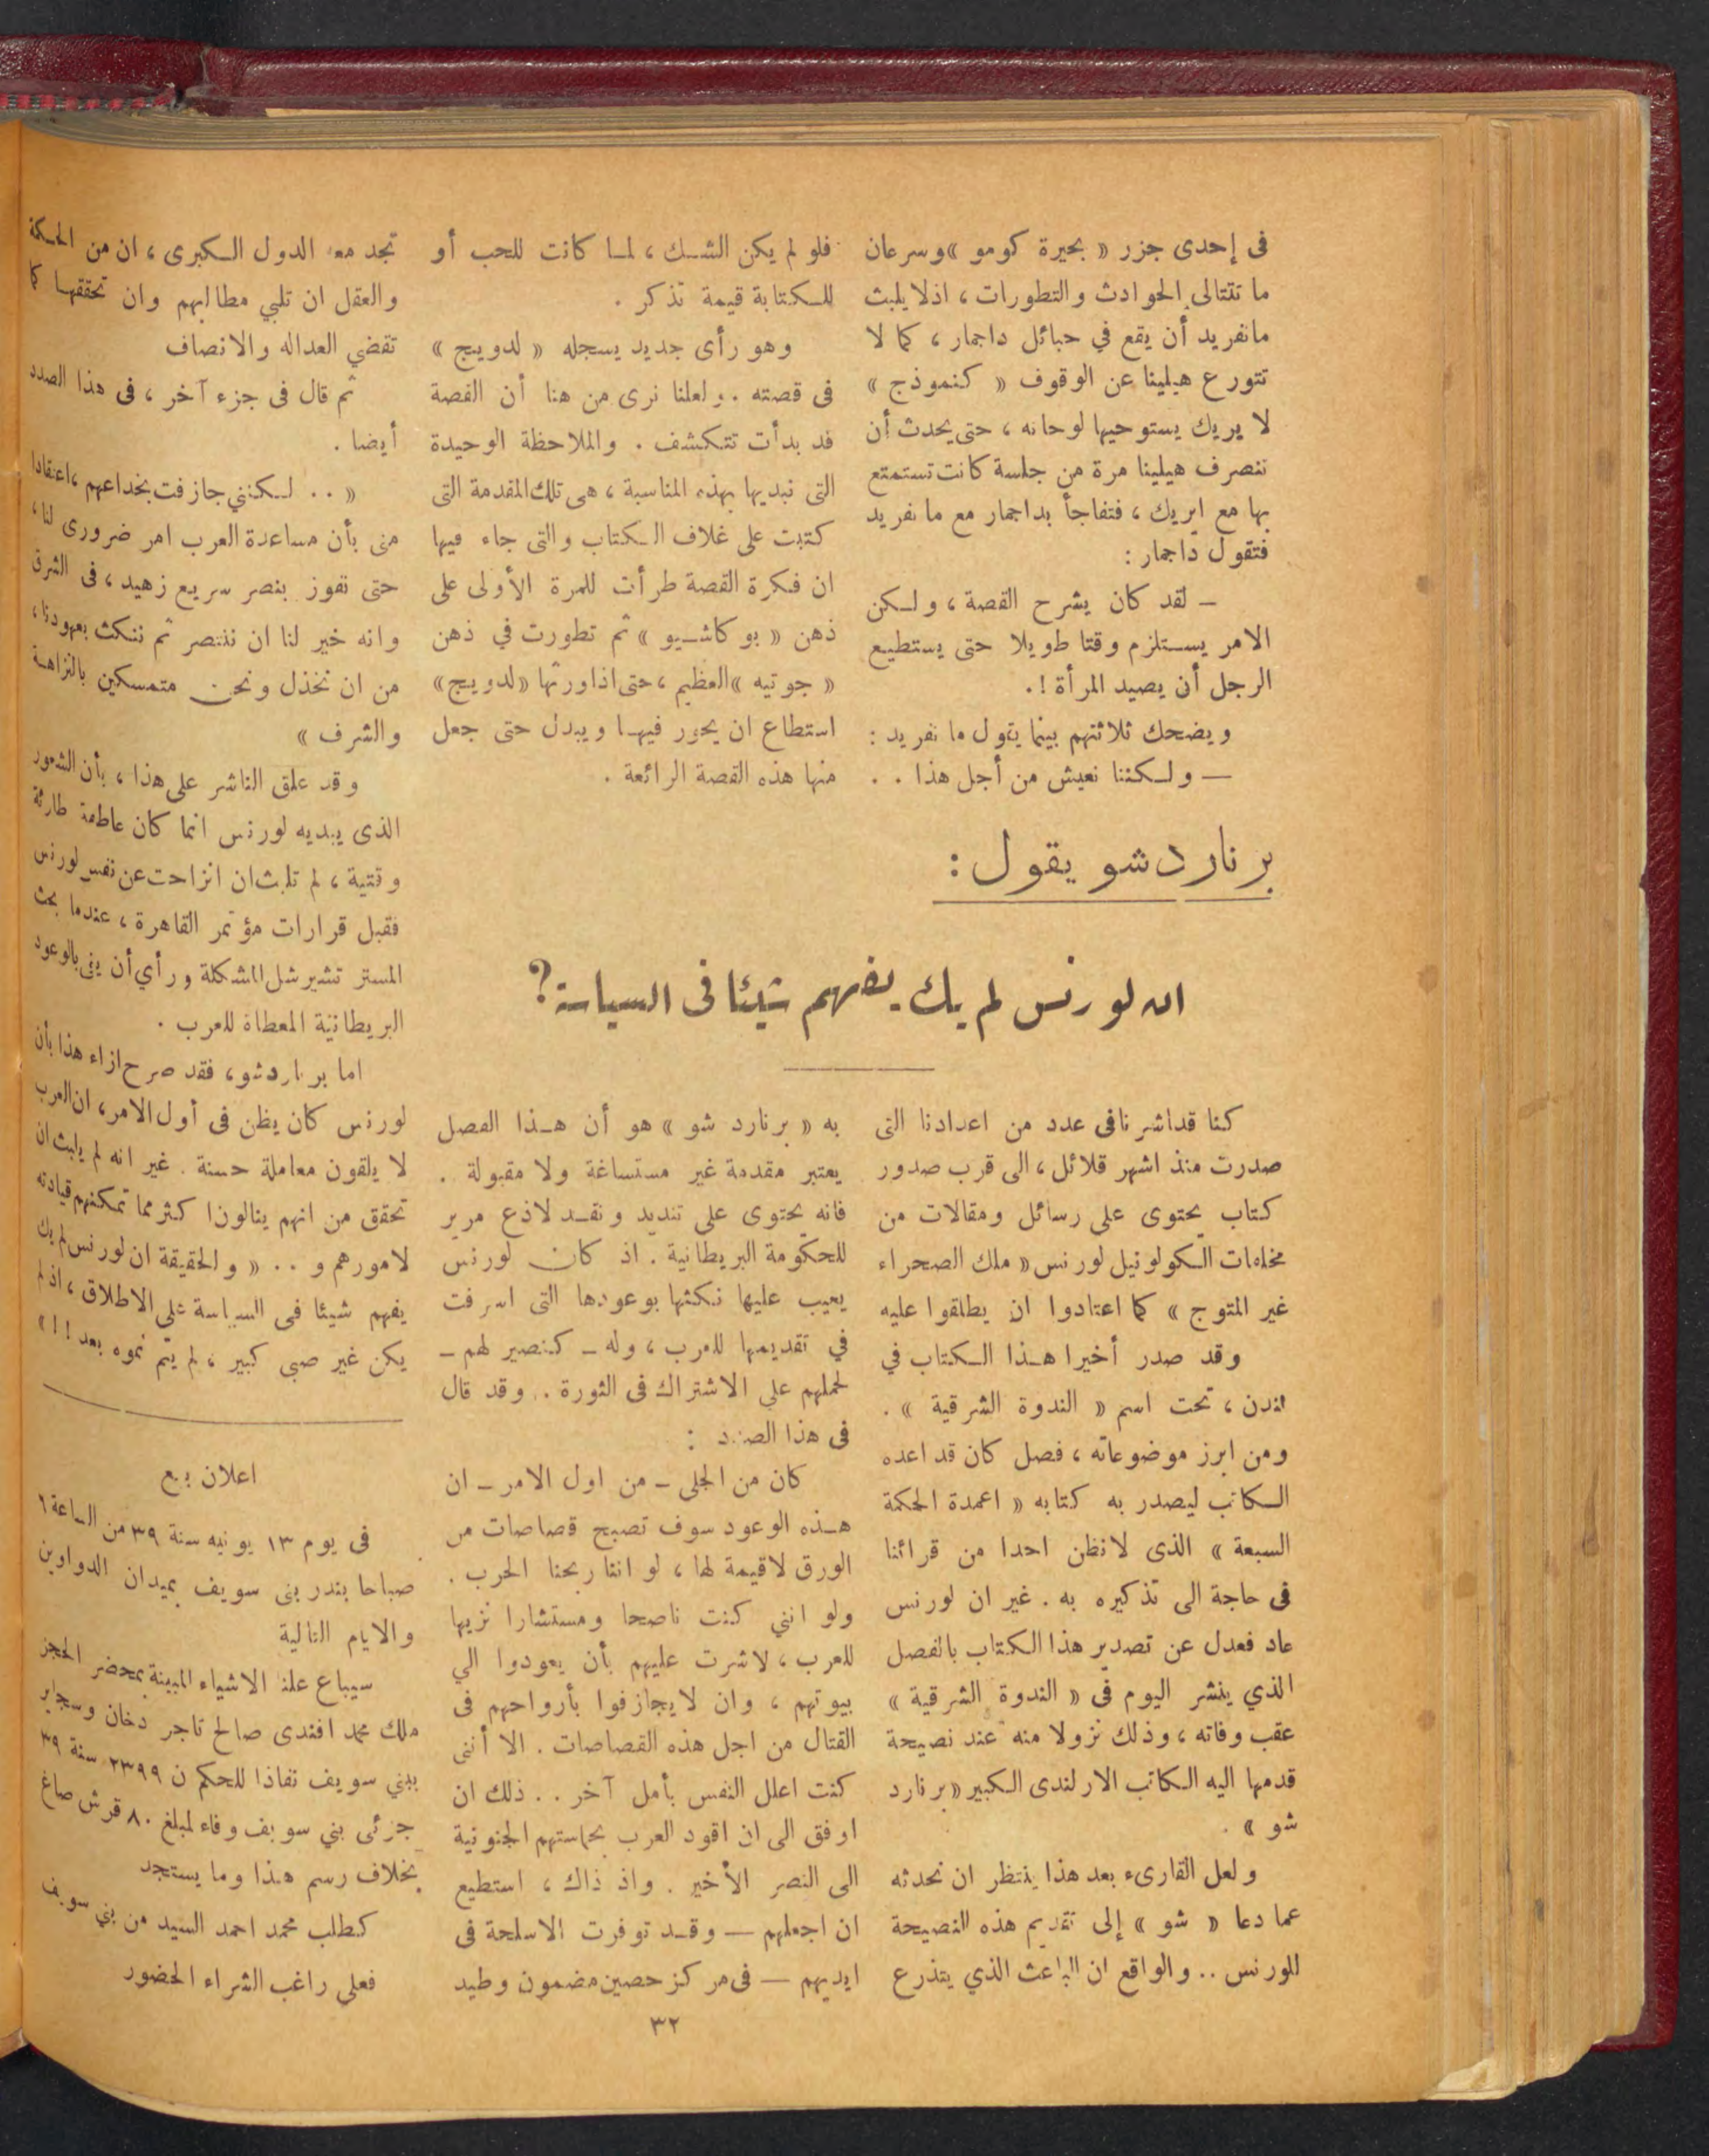 فى إحدى جزر « بحيرة كومو » وسرعان
ما تتتالى الحوادث والتطورات ، اذلا يلبث
مانفريد أن يقع في حبائل داجمار ، كما لا
تتورع هيلينا عن الوقوف « كنموذج »
لا يريك يستوحيها لوحاته ، حتى يحدث أن
تنصرف هيلينا مرة من جلسة كانت تستمتع
بها مع ايريك ، فتفاجأ بداجمار مع مانفريد
فتقول داجمار :
— لقد كان يشرح القصة ، ولكن
الامر يستلزم وقتا طويلا حتى يستطيع
الرجل أن يصيد المرأة ! .
ويضحك ثلاثتهم بينما يقول مانفريد :
— ولكننا نعيش من أجل هذا . .
فلو لم يكن الشك ، لما كانت للحب أو
للكتابة قيمة تذكر .
وهو رأى جديد يسجله « لدويج »
فى قصته . ولعلنا نرى من هنا أن القصة
قد بدأت تتكشف . والملاحظة الوحيدة
التى نبديها بهذه المناسبة ، هى تلك المقدمة التى
كتبت على غلاف الكتاب والتى جاء فيها
ان فكرة القصة طرأت للمرة الأولى على
ذهن « بوكاشيو » ثم تطورت في ذهن
« جوتيه » العظيم ، حتى اذا ورثها « لدويج »
استطاع ان يحور فيها ويبدل حتى جعل
منها هذه القصة الرائعة .
برناردشو يقول :
ان لورنس لم يك يفهم شيئا فى السياسة ؟
كنا قد اشرنا فى عدد من اعدادنا التى
صدرت منذ اشهر قلائل ، الى قرب صدور
كتاب يحتوى على رسائل ومقالات من
مخلفات الكولونيل لورنس « ملك الصحراء
غير المتوج » كما اعتادوا ان يطلقوا عليه
وقد صدر أخيرا هذا الكتاب في
لندن ، تحت اسم « الندوة الشرقية » .
ومن ابرز موضوعاته ، فصل كان قد اعده
الكاتب ليصدر به كتابه « اعمدة الحكمة
السبعة » الذى لانظن احدا من قرائنا
فى حاجة الى تذكيره به . غير ان لورنس
عاد فعدل عن تصدير هذا الكتاب بالفصل
الذي ينشر اليوم فى « الندوة الشرقية »
عقب وفاته ، وذلك نزولا منه عند نصيحة
قدمها اليه الكاتب الارلندى الكبير « برنارد
شو » .
ولعل القارىء بعد هذا ينتظر ان نحدثه
عما دعا « شو » إلى تقديم هذه النصيحة
للورنس .. والواقع ان الباعث الذي يتذرع
به « برنارد شو » هو أن هذا الفصل
يعتبر مقدمة غير مستساغة ولا مقبولة .
فانه يحتوى على تنديد ونقد لاذع مرير
للحكومة البريطانية . اذ كان لورنس
يعيب عليها نكثها بوعودها التى اسرفت
في تقديمها للعرب ، وله — كنصير لهم —
لحملهم على الاشتراك فى الثورة . وقد قال
فى هذا الصدد :
كان من الجلى — من اول الامر — ان
هذه الوعود سوف تصبح قصاصات من
الورق لاقيمة لها ، لو اننا ربحنا الحرب .
ولو انني كنت ناصحا ومستشارا نزيها
للعرب ، لاشرت عليهم بأن يعودوا الي
بيوتهم ، وان لا يجازفوا بأرواحهم فى
القتال من اجل هذه القصاصات . الا أننى
كنت اعلل النفس بأمل آخر . . ذلك ان
اوفق الى ان اقود العرب بحماستهم الجنونية
الى النصر الأخير . واذ ذاك ، استطيع
ان اجعلهم — وقد توفرت الاسلحة فى
ايديهم — فى مركز حصين مضمون وطيد
تجد معه الدول الكبرى ، ان من الحكمة
والعقل ان تلبي مطالبهم وان تحققها كما
تقضي العداله والانصاف
ثم قال فى جزء آخر ، فى هذا الصدد
أيضا .
« . . لكننى جازفت بخداعهم ، اعتقادا
منى بأن مساعدة العرب امر ضرورى لنا ،
حتى نفوز بنصر سريع زهيد ، فى الشرق
وانه خير لنا ان ننتصر ثم ننكث بعهودنا ،
من ان نخذل ونحن متمسكين بالنزاهة
والشرف »
وقد علق الناشر على هذا ، بأن الشعور
الذى يبديه لورنس انما كان عاطفة طارئة
وقتية ، لم تلبث ان انزاحت عن نفس لورنس
فقبل قرارات مؤتمر القاهرة ، عندما بحث
المستر تشيرشل المشكلة ورأي أن يفى بالوعود
البريطانية المعطاة للعرب .
اما برناردشو ، فقد صرح ازاء هذا بأن
لورنس كان يظن فى أول الامر ، ان العرب
لا يلقون معاملة حسنة . غير انه لم يلبث ان
تحقق من انهم ينالون اكثر مما تمكنهم قيادته
لامورهم و . . « والحقيقة ان لورنس لم يك
يفهم شيئا فى السياسة على الاطلاق ، اذ لم
يكن غير صبى كبير ، لم يتم نموه بعد ! ! »
اعلان بيع
فى يوم ١٣ يونيه سنة ٣٩ من الساعة ٦
صباحا بندر بنى سويف بميدان الدواوين
والايام التالية
سيباع علنا الاشياء المبينة بمحضر الحجز
ملك محمد افندى صالح تاجر دخان وسجاير
ببني سويف نفاذا للحكم ن ٢٣٩٩ سنة ٣٩
جزئى بني سويف وفاء لمبلغ ٨٠ قرش صاغ
بخلاف رسم هذا وما يستجد
كطلب محمد احمد السيد من بني سويف
فعلى راغب الشراء الحضور
٣٢